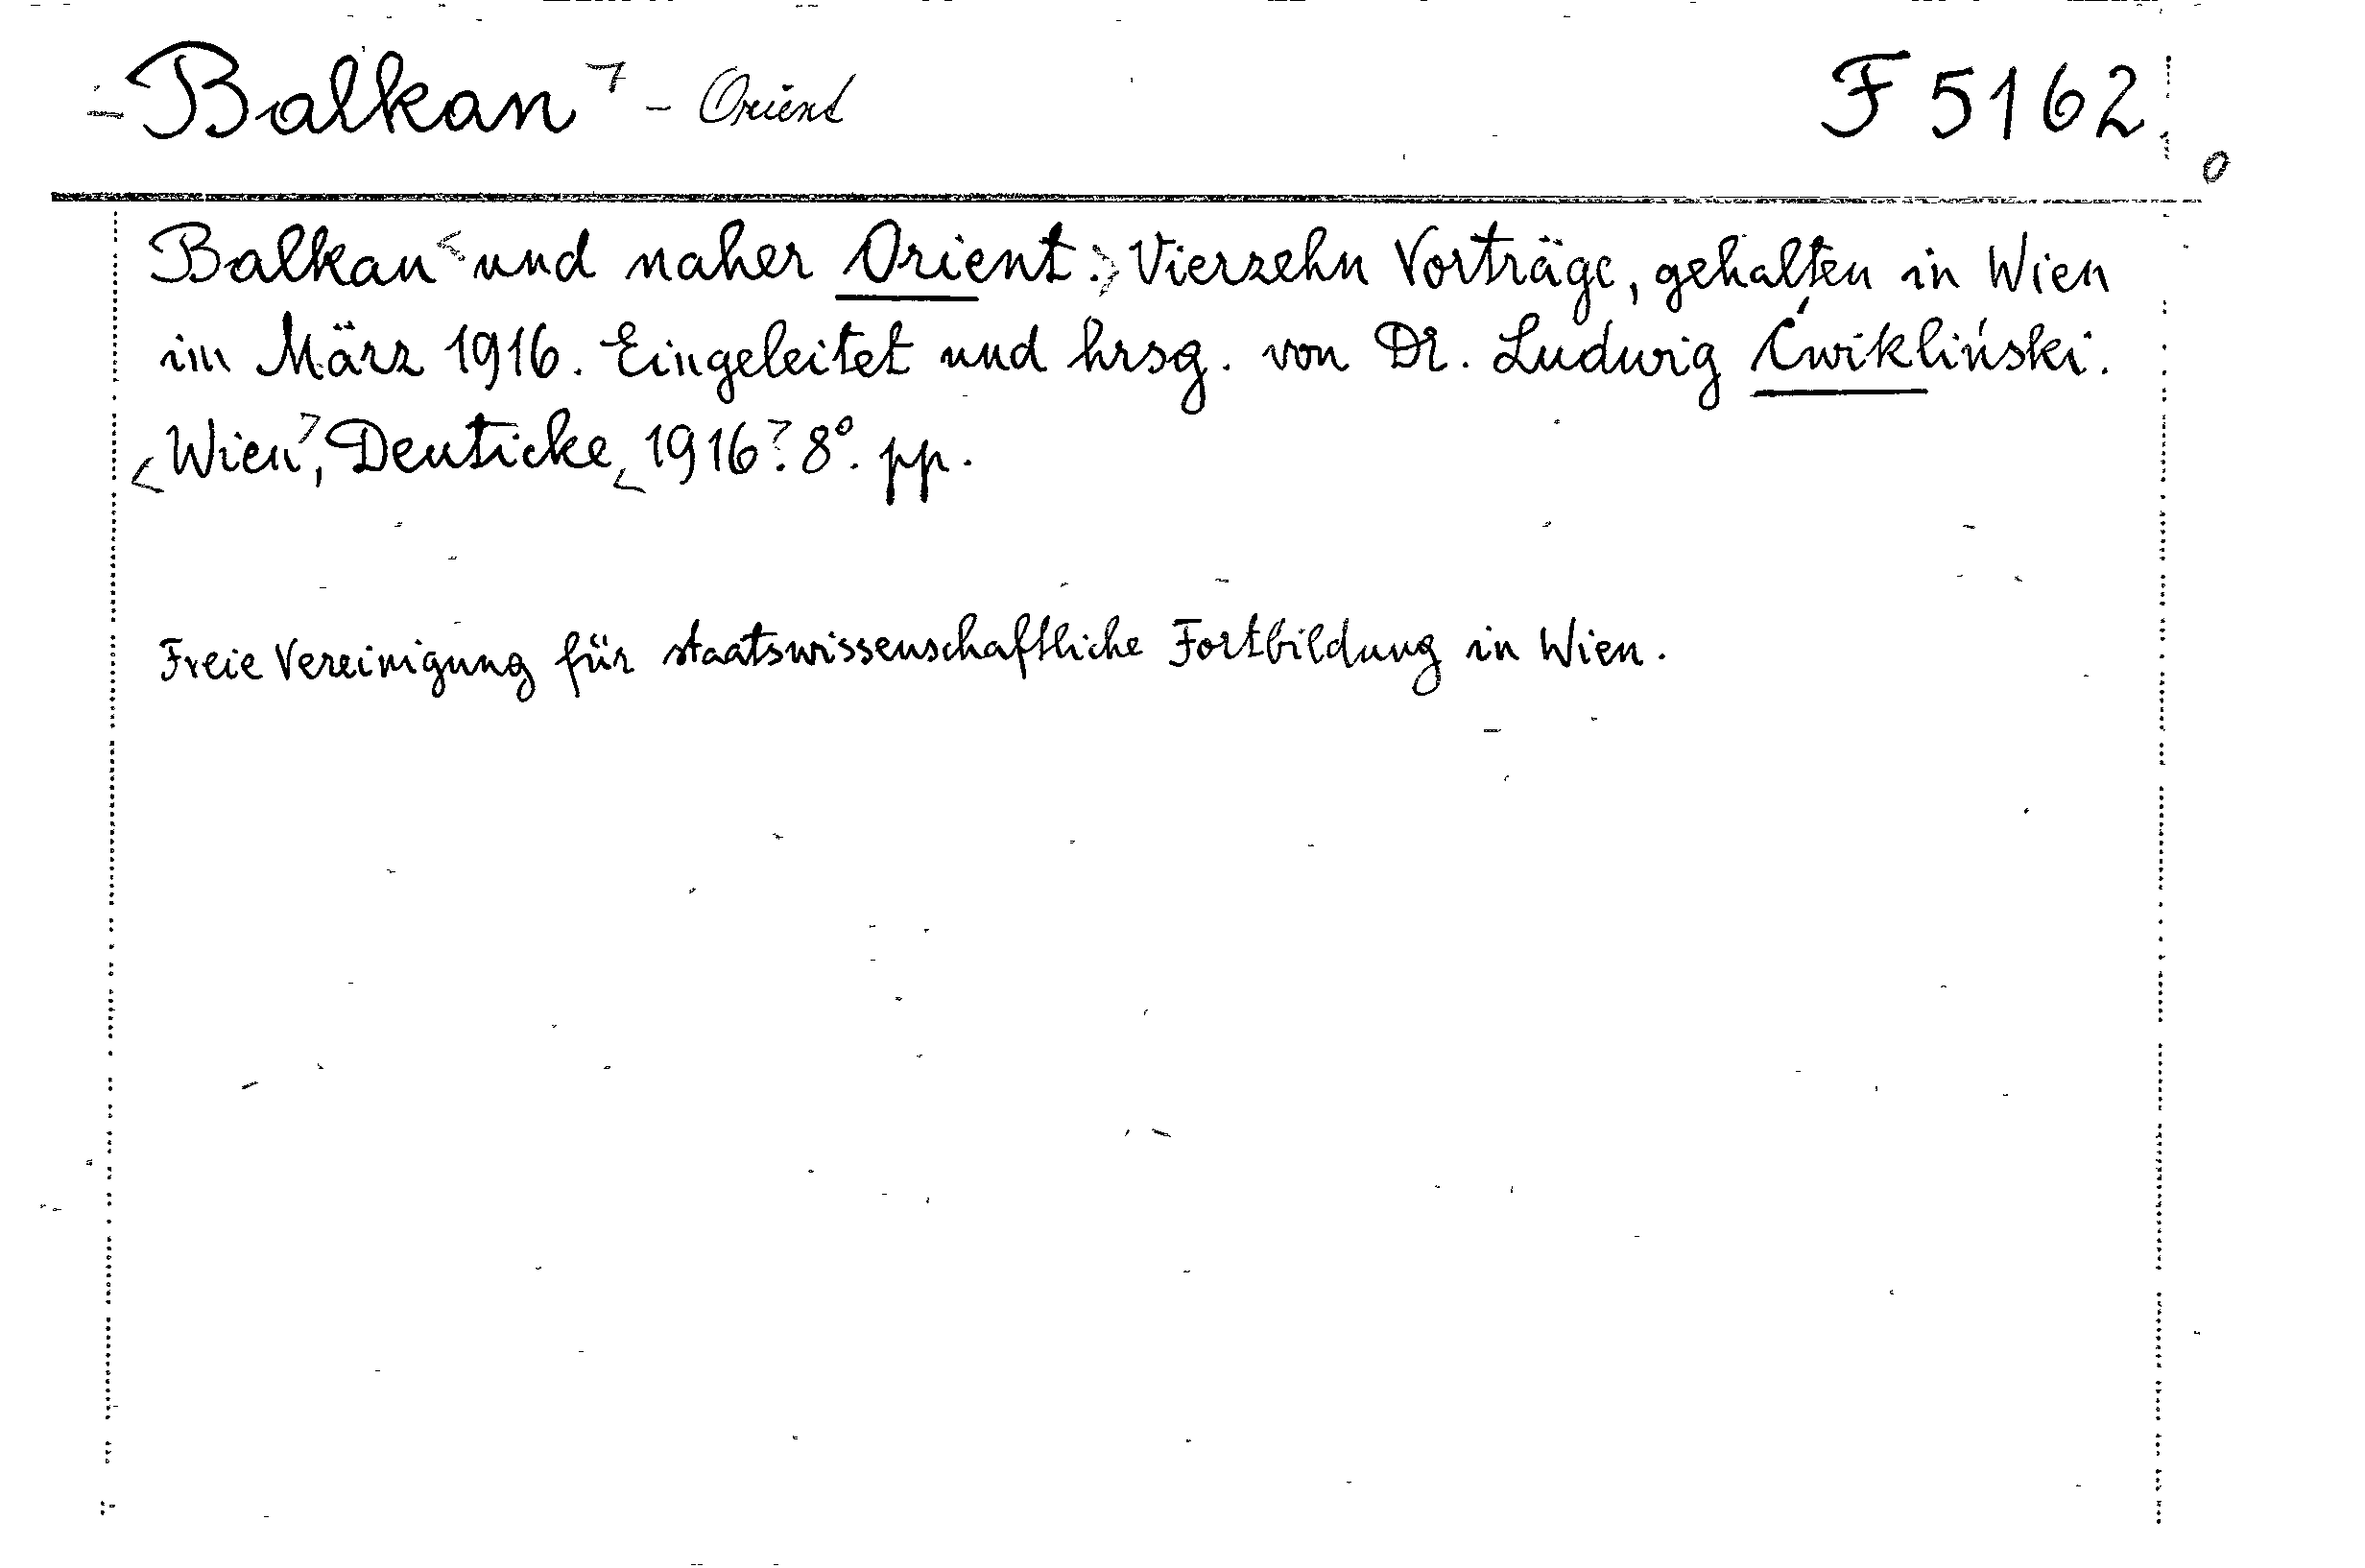 Balkan - Orient F 5162
0
Balkan und naher Orient. Vierzehn Vorträge, gehalten in Wien
im März 1916. Eingeleitet und hrsg. von Dr. Ludwig Ćwikliński.
Wien, Deuticke, 1916. 8°. pp.
Freie Vereinigung für staatswissenschaftliche Fortbildung in Wien.